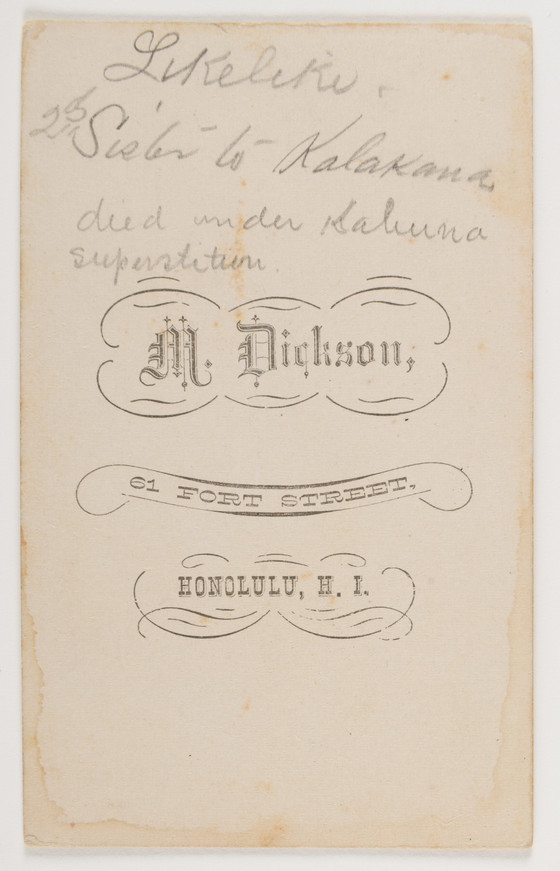 Likelike.
2d Sister to Kalakana
died under Kahuna
superstition.
M. Dickson,
61 FORT STREET,
HONOLULU, H. I.